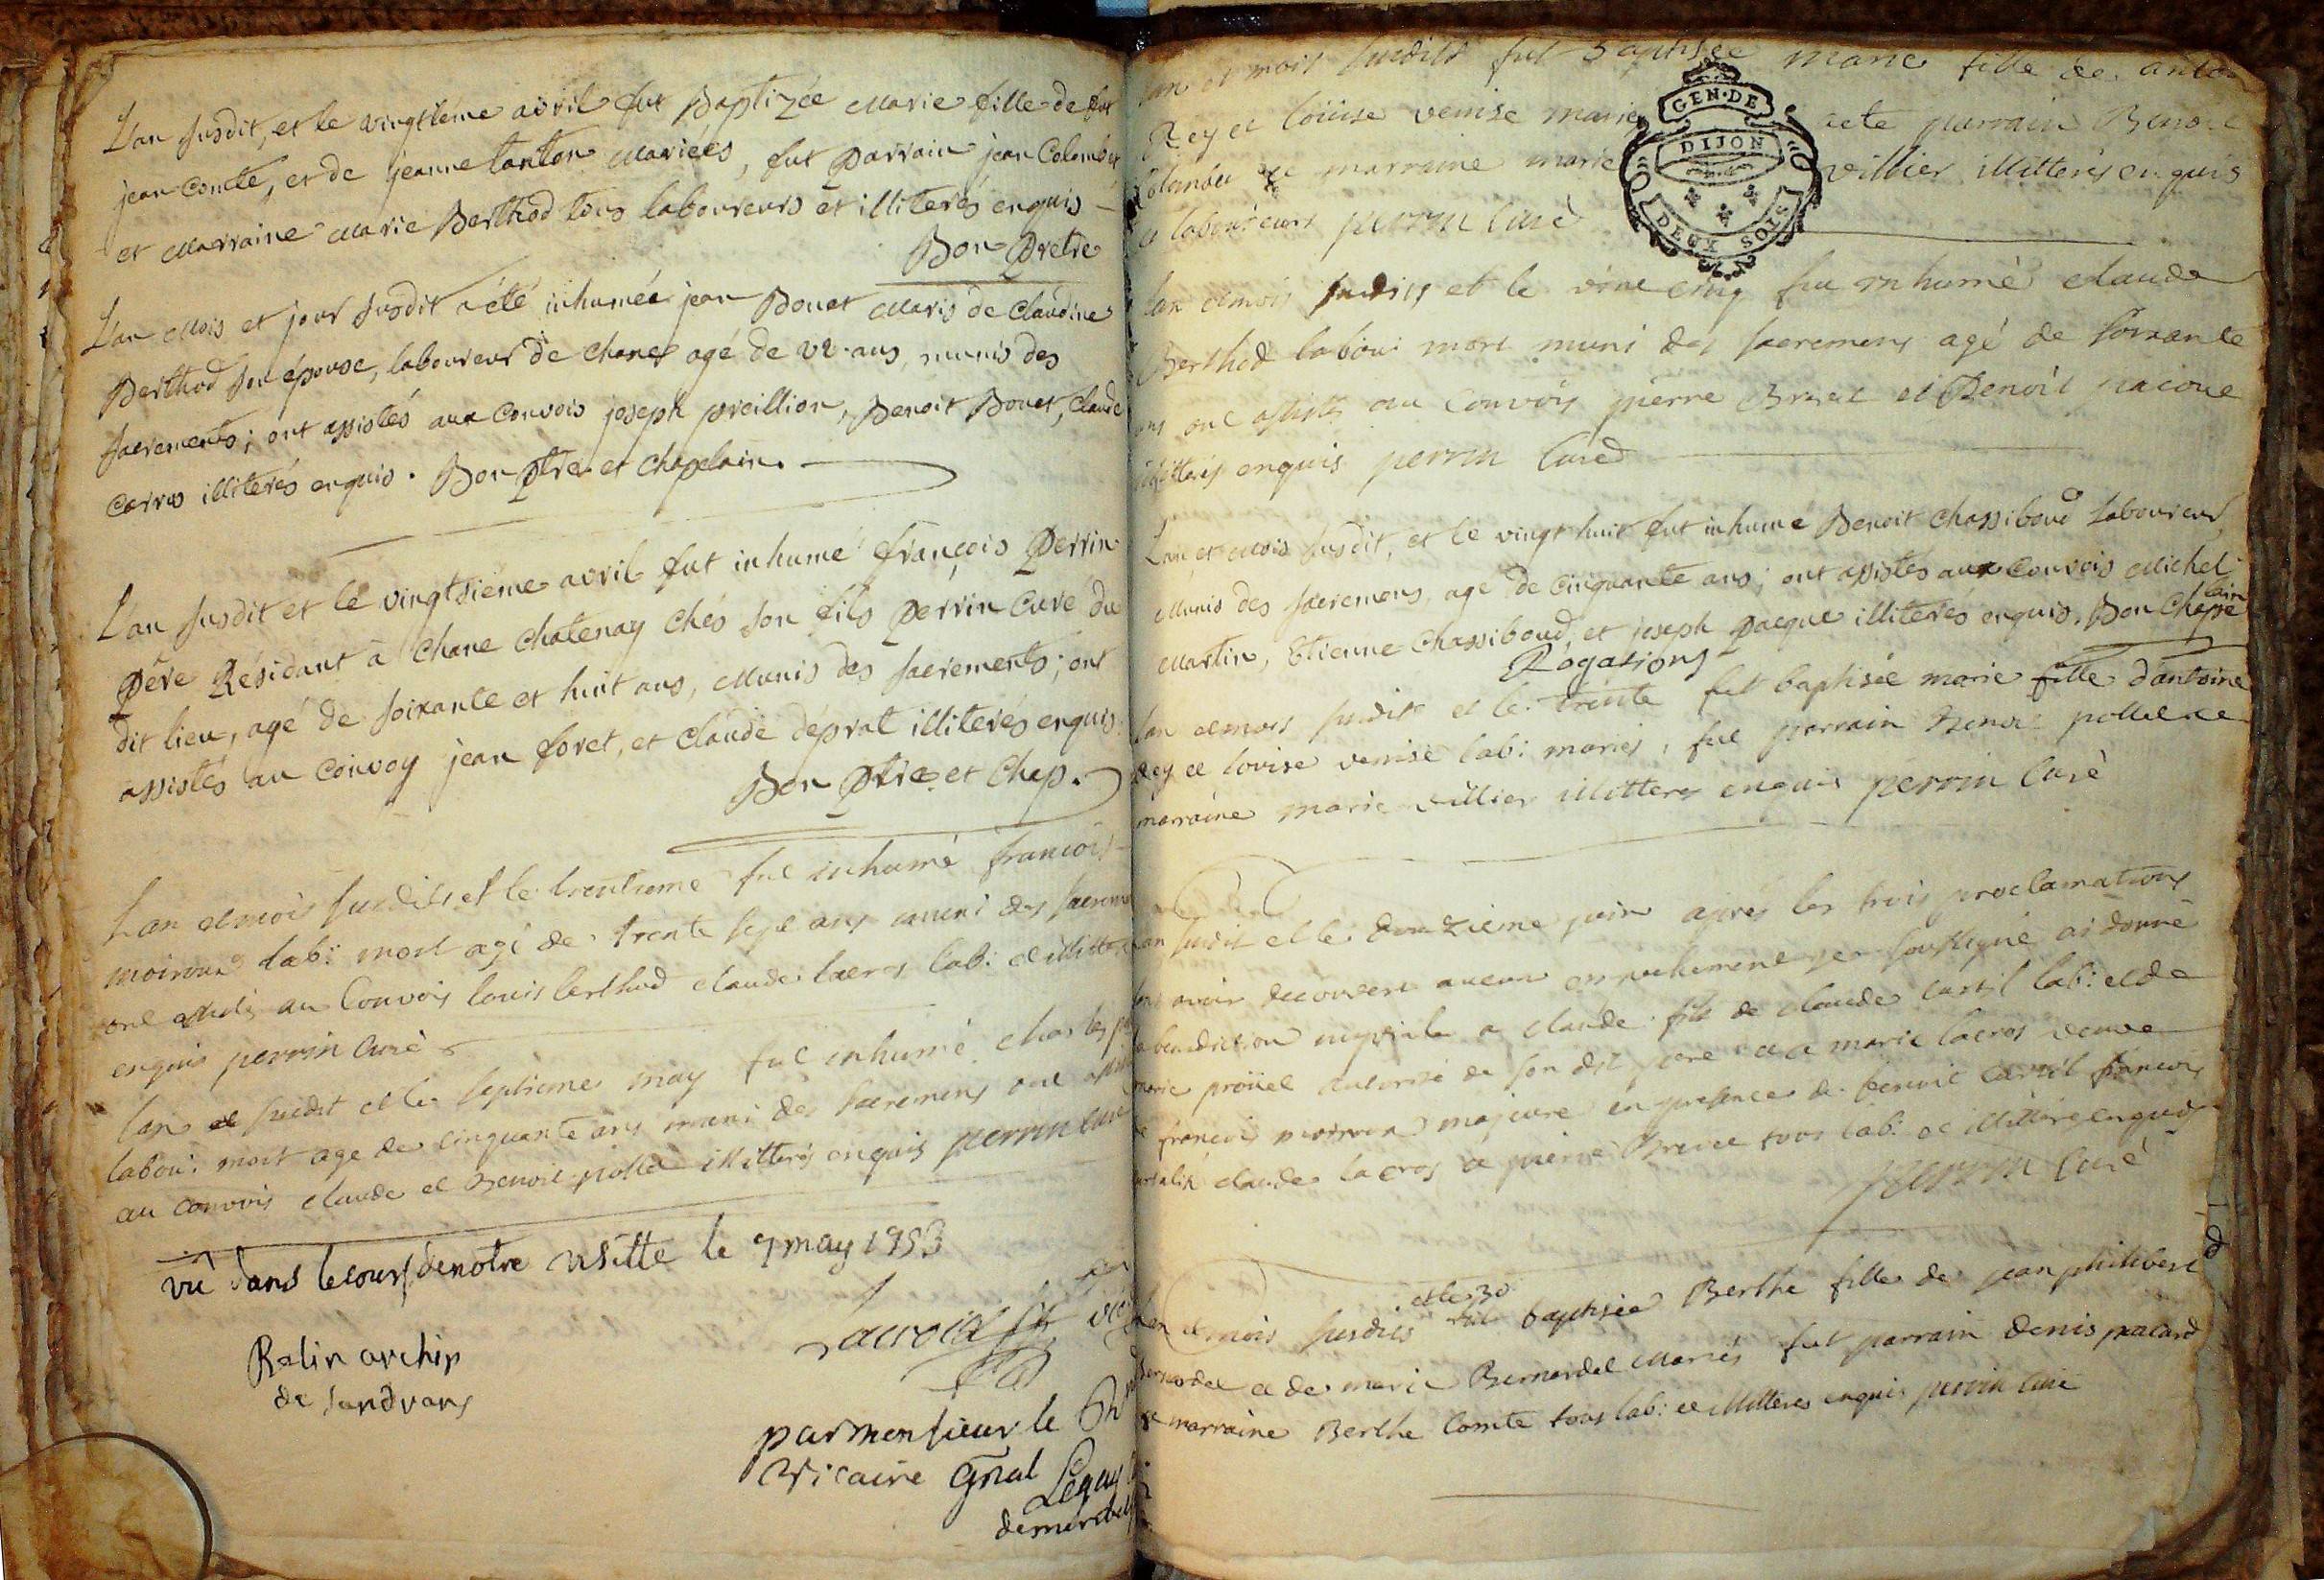 L'an susdit, et le vingtième avril fut Baptizée Marie fille de
jean Comte, et de jeanne tanton Mariées, fut Parrain jean Colombier
et Marraine Marie Berthod tous laboureurs et illiterés enquis
Bon Prêtre
L'an Mois et jour susdit a été inhumée jean Bouet Maris de Claudine
Berthod son épouse, laboureur de Chane agé de ans, munis des
sacrements; ont assistés aux Convois joseph preillion, Benoit Bouet, Claude
Carros illiterés enquis. Bon Ptre et Chapelain.
L'an susdit et le vingtsième avril fut inhumé françois Perrin
Père Résidant à Chane Chatenay chés son fils Perrin Curé du
dit lieu, agé de soixante et huit ans, Munis des sacrements; ont
assistés au Convoy jean foret, et Claude déprat illiterés enquis
Bon Ptre et Chap.
L'an et mois susdits et le trentieme fut inhumé francois
moiroux lab: mort agé de trente sept ans muni des
ont au Convois louis berthod claude lacros lab: et
enquis perrin Curé
lan susdit et le septieme may fut inhumé charles
labou: mort age de cinquante ans muni des sacremens ont
au convois claude et Benoit pollet illitterés enquis perrin curé
vû dans le cours de notre visitte le 9 may 1753
Relin archip
de sandrans
par monsieur le
vicaire Gnal
Leguay
lan et mois susdits fut Baptisée marie fille de
Rey et loüise venise mariés parrain Benoit
Colombier et marraine marie villier illitterés enquis
et laboureurs perrin Curé
GEN·DE
DIJON
DEUX SOLS
lan et mois susdits et le vint cinq fut inhumé claude
Berthod labou: mort muni des sacremens agé de soixante
ans ont assisté au Convois pierre Brevet et Benoit
illitterés enquis perrin Curé
L'an et Mois susdit, et le vingt huit fut inhumé Benoit Chassiboud Laboureur
Munis des sacremens, agé de Cinquante ans; ont assistés aux Convois Michel
Martin, Etienne Chassiboud, et joseph Pacque illiterés enquis, Bon Chapelain
Rogations
lan et mois susdits et le trente fut baptisée marie fille d'antoine
Rey et lovise venise lab: mariés, fut parrain Benoit pollet et
marraine marie villier illitteres enquis perrin Curé
lan susdit et le douzieme juin après les trois proclamations
sans avoir decouvert aucun empechement je soussigné ai donné
la benediction nuptiale a claude fils de claude curtil lab: et de
marie proüel autorisé de son dit pere et a marie lacros veuve
de francois moiroux majeure en presence de benoit curtil francois
claude lacros et pierre Brevet tous lab: et illitterés enquis
perrin Curé
et le 30
Lan et mois susdits fut baptisée Berthe fille de jean philibert
Bernardet et de marie Bernardet Mariés fut parrain denis pacard
et marraine Berthe Comte tous lab: et illitteres enquis perrin Curé